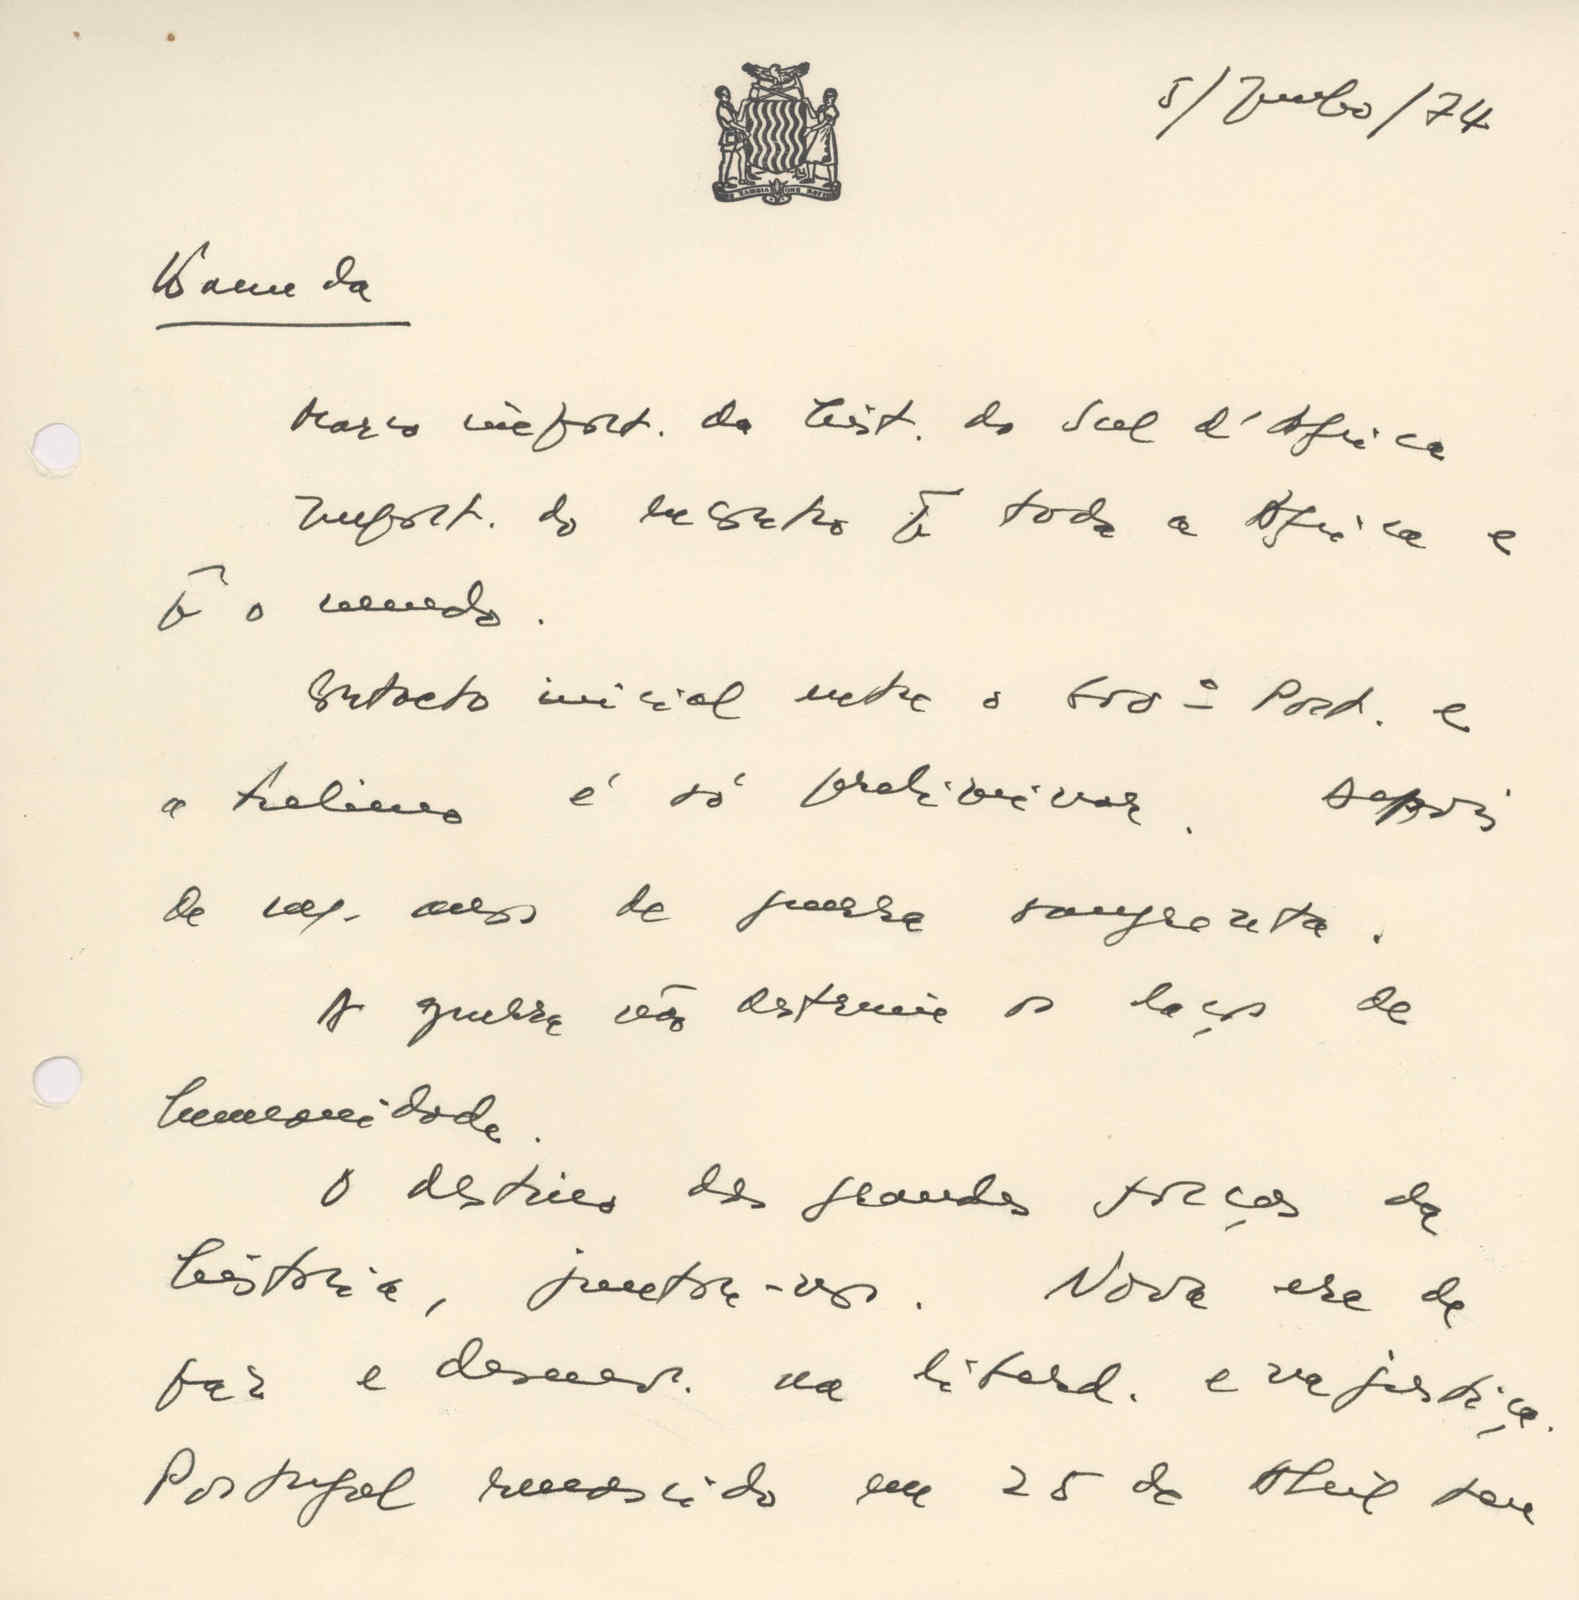 5/Junho/74
Kaunda
Marco import. da hist. do Sul d'África
Import. do encontro p̄ toda a África e
p̄ o mundo.
Contacto inicial entre o Govº Port. e
a Frelimo é só preliminar. Depois
de anos de guerra sangrenta.
A guerra não destruiu os laços de
humanidade.
O destino das grandes forças da
história, juntou-nos. Nova era de
paz e desenv. na liberd. e na justiça.
Portugal renascido em 25 de Abril tem